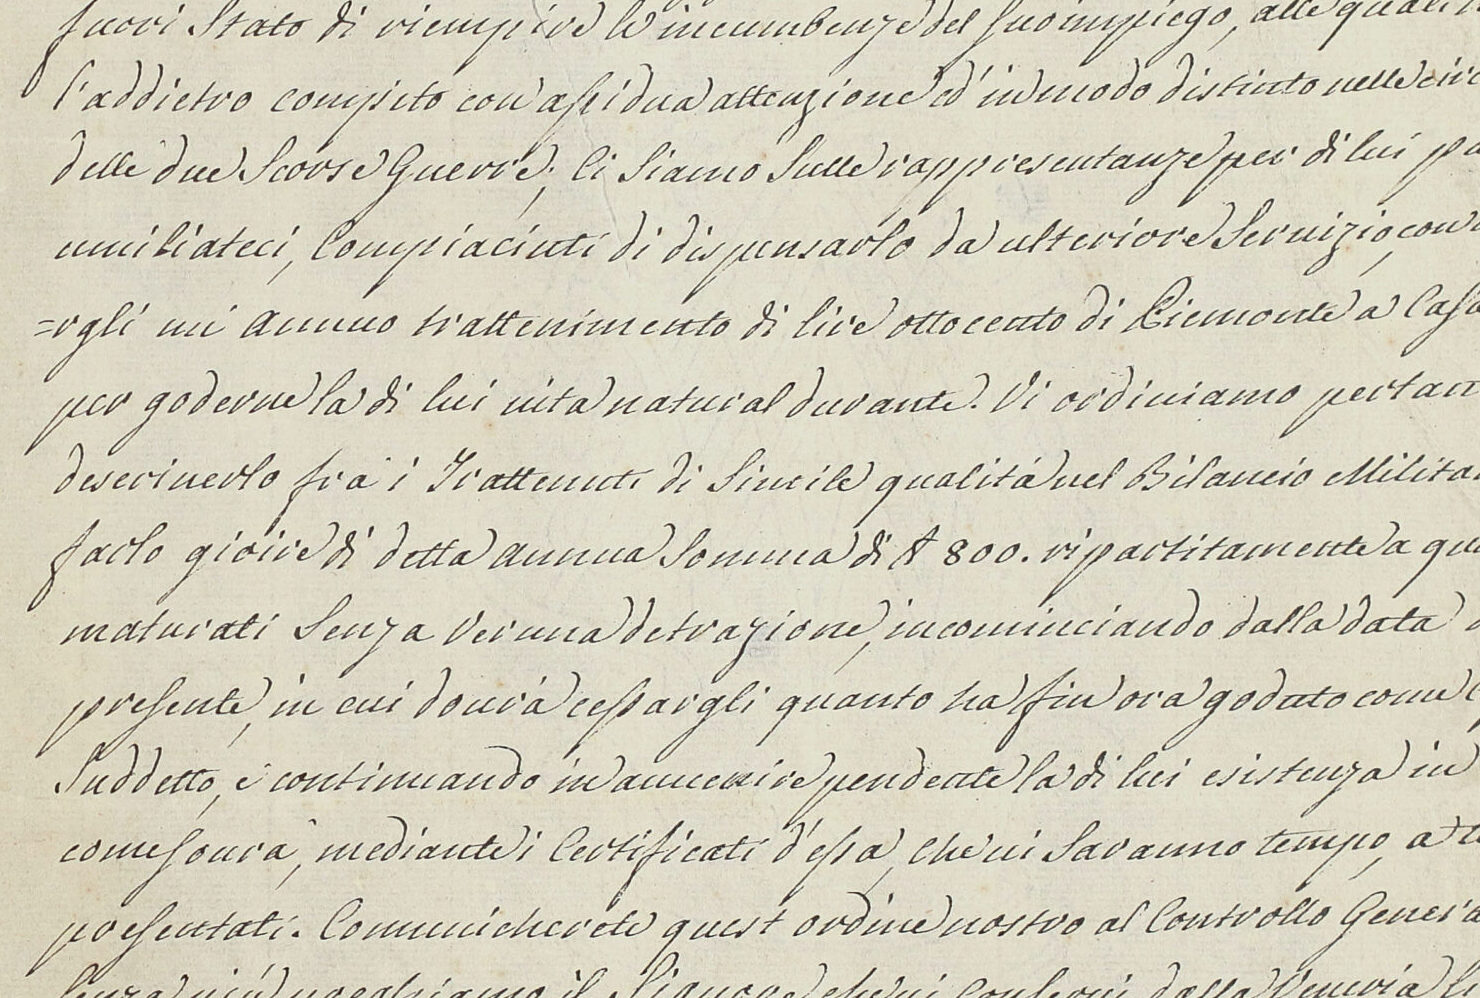 fuori Stato di riempire le incumbenze del suo impiego, alle quali
l'addietro compito con assidua attenzione ed in modo distinto nelle
delle due Scorse Guerre; Ci Siamo Sulle rappresentanze per di lui
umiliateci, Compiaciuti di dispensarlo da ulteriore Servizio, con
=rgli un annuo trattenimento di lire ottocento di Piemonte a
per goderne la di lui vita natural durante. Vi ordiniamo
descriverlo frà i Trattenuti di Simile qualità nel Bilancio
farlo gioire di detta annua Somma di £ 800. ripartitamente a
maturati Senza veruna detrazione, incominciando dalla data
presente, in cui dovrà cessargli quanto ha fin ora goduto come
Suddetto, e continuando in auuenire pendente la di lui esistenza in
come soura, mediante i Certificati d'essa, che ui Saranno tempo, a
presentati. Comunicherete quest ordine nostro al Controllo
Senza più preghiamo il Signore che ui Conserui dalla Veneria